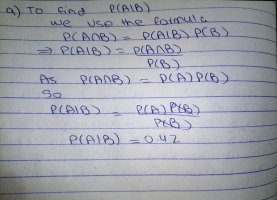 a) TO Find P(A|B)
we use the formula
P(A∩B) = P(A|B) P(B)
⇒ P(A|B) = P(A∩B)
P(B)
As P(A∩B) = P(A) P(B)
So
P(A|B) = P(A) P(B)
P(B)
P(A|B) = 0.42